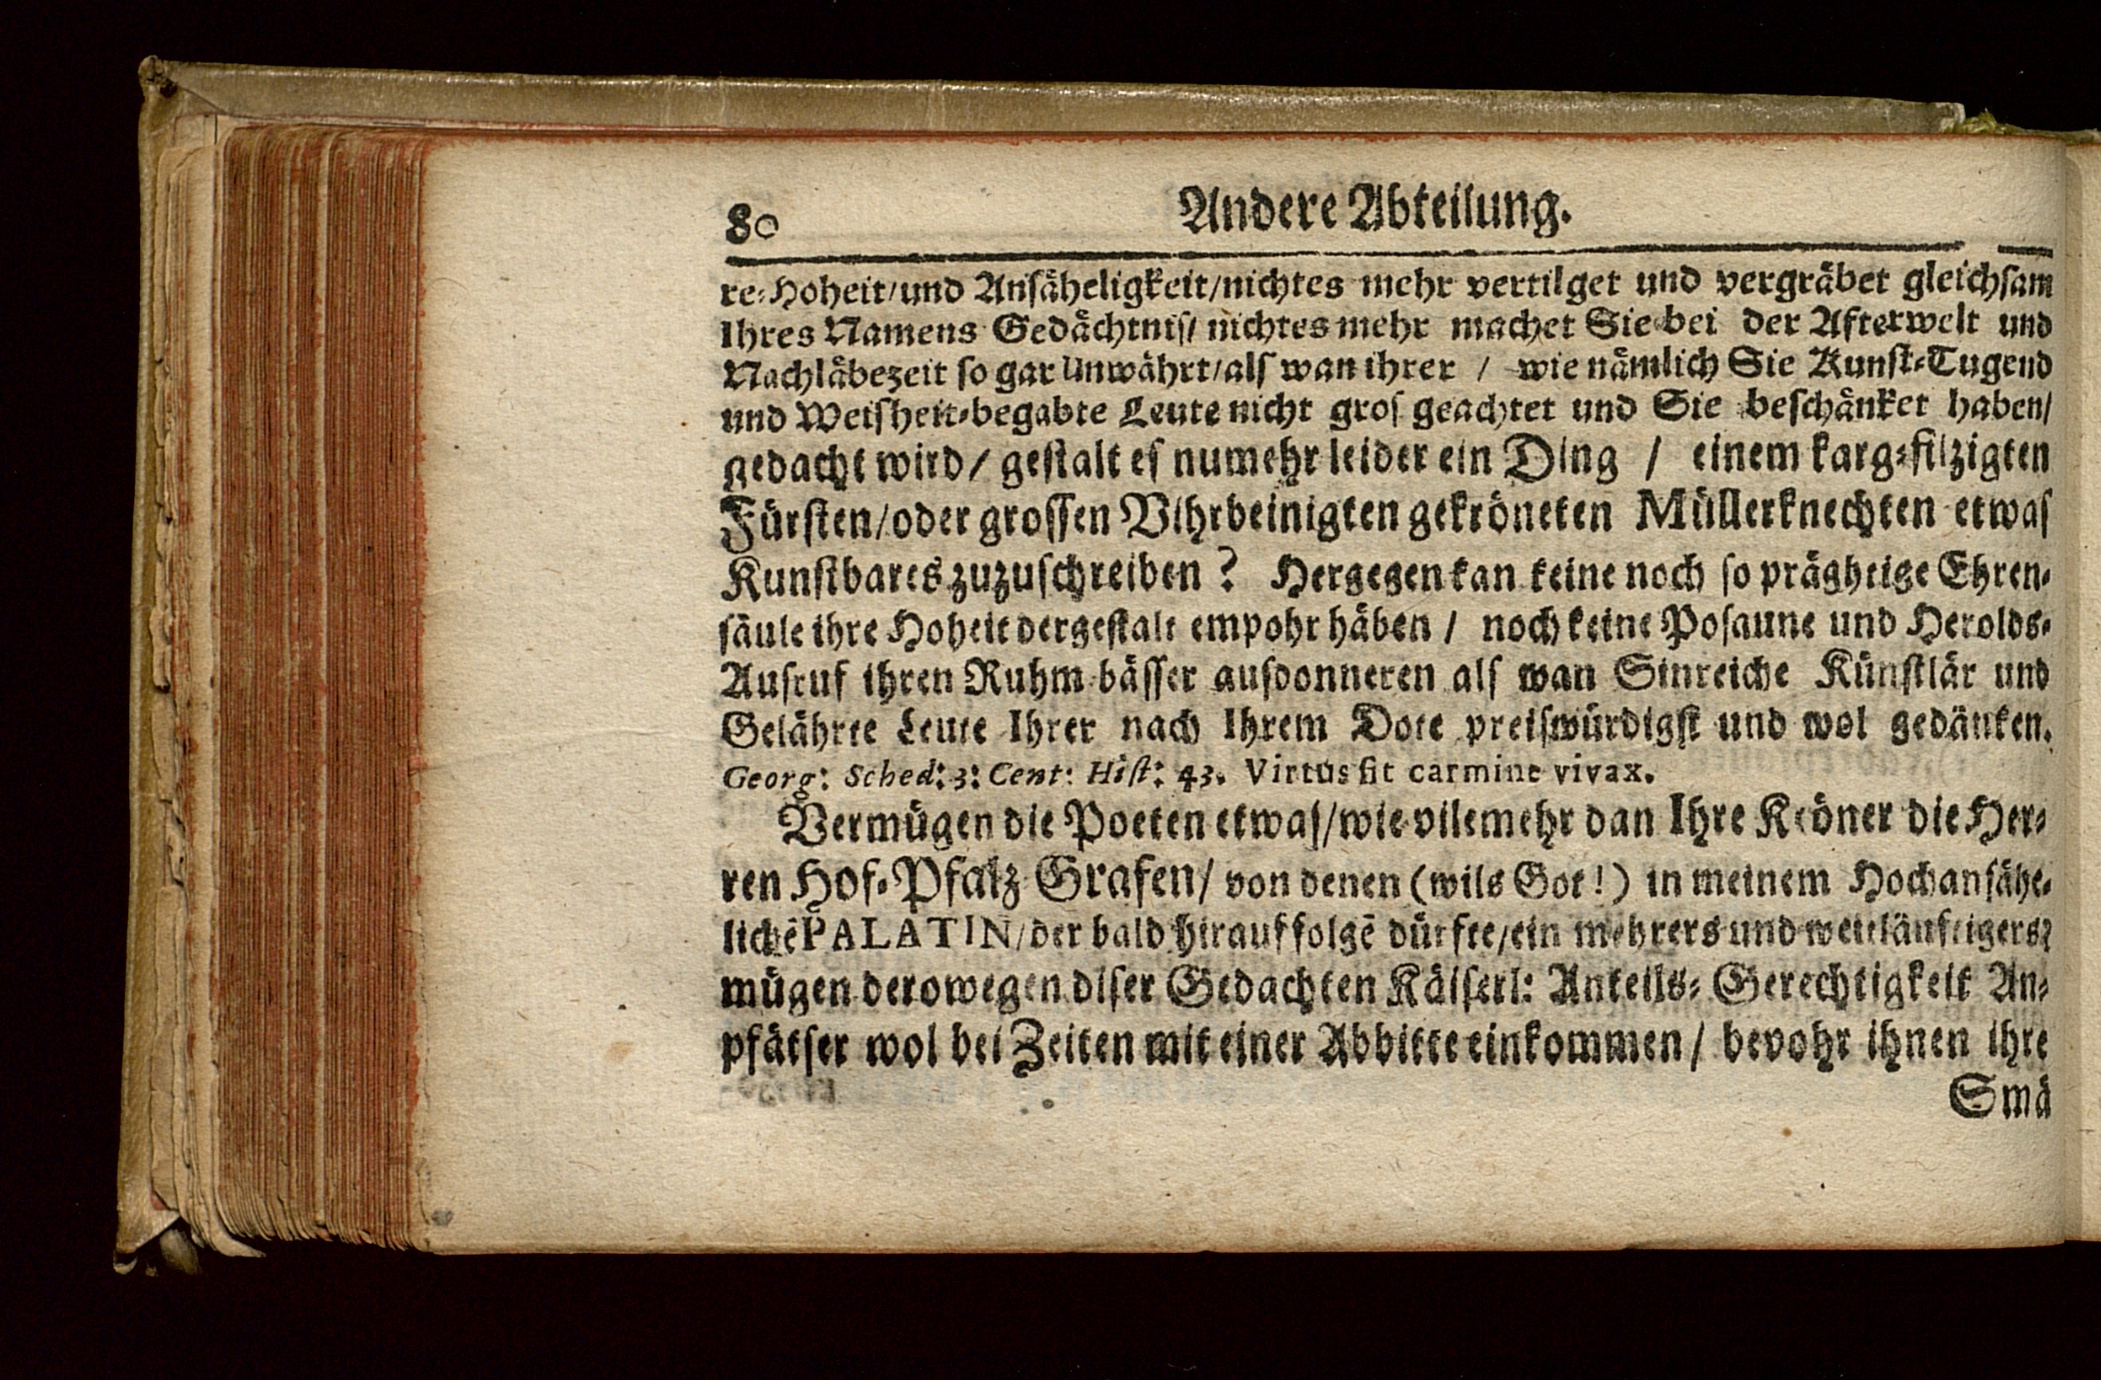 80 Andere Abteilung.
re-Hoheit/und Ansäheligkeit/nichtes mehr vertilget und vergräbet gleichsam
Ihres Namens Gedächtnis/ nichtes mehr machet Sie bei der Afterwelt und
Nachläbezeit so gar Unwährt/als wan ihrer / wie nämlich Sie Kunst-Tugend
und Weisheit-begabte Leute nicht gros geachtet und Sie beschänket haben/
gedacht wird/ gestalt es numehr leider ein Ding / einem karg-filzigten
Fürsten/oder grossen Vihrbeinigten gekröneten Müllerknechten etwas
Kunstbares zuzuschreiben? Hergegen kan keine noch so präghtige Ehren-
säule ihre Hoheit dergestalt empohr häben / noch keine Posaune und Herolds-
Ausruf ihren Ruhm bässer ausdonneren als wan Sinreiche Künstlär und
Gelährte Leute Ihrer nach Ihrem Dote preiswürdigst und wol gedänken.
Georg: Sched: 3: Cent: Hist: 43. Virtus fit carmine vivax.
Vermügen die Poeten etwas/wie vilemehr dan Ihre Kröner die Her-
ren Hof-Pfalz Grafen/ von denen (wils Got!) in meinem Hochansähe-
lichẽ PALATIN/der bald hirauf folgẽ dürfte/ein mehrers und weitläuftigers?
mügen derowegen diser Gedachten Käiserl: Anteils- Gerechtigkeit An-
pfätser wol bei Zeiten mit einer Abbitte einkommen/ bevohr ihnen ihre
Smä